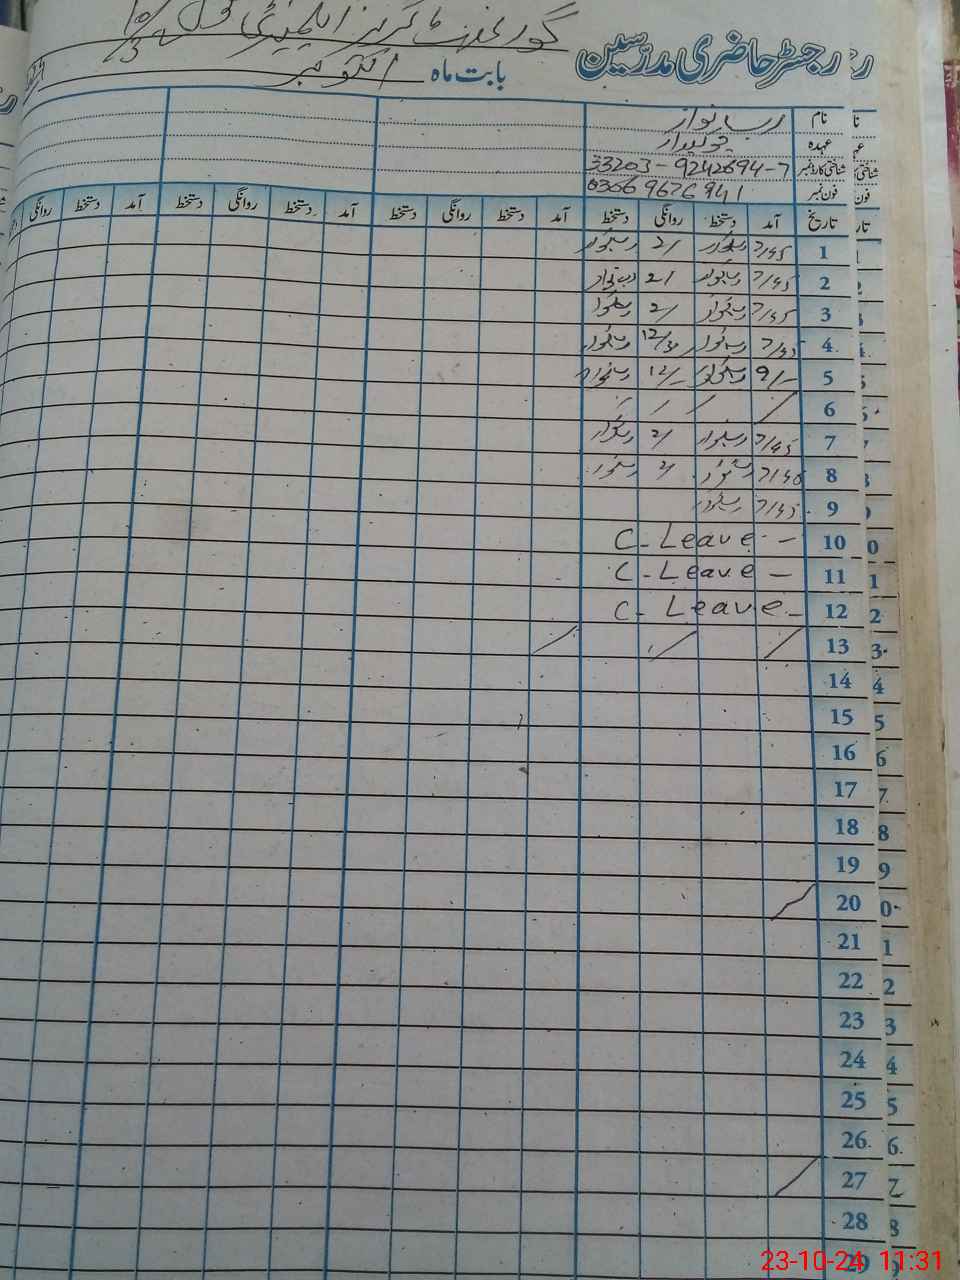 گورنمنٹ گرلز ایلیمنٹری سکول
رجسٹر حاضری مدرسین
بابت ماہ اکتوبر
نام رب نواز
عہدہ چوکیدار
شناختی کارڈ نمبر 33203-9242694-7
فون نمبر 03669676941
تاریخ آمد دستخط روانگی دستخط آمد دستخط روانگی دستخط آمد دستخط روانگی دستخط آمد دستخط روانگی
1 7/45 رب نواز 2/ رب نواز
2 7/45 رب نواز 2/ رب نواز
3 7/45 رب نواز 2/ رب نواز
4 7/45 رب نواز 12/30 رب نواز
5 9/- رب نواز 12/- رب نواز
6
7 7/45 رب نواز 2/ رب نواز
8 7/50 رب نواز 2/ رب نواز
9 7/45 رب نواز
10 C-Leave -
11 C-Leave -
12 C-Leave -
13
14
15
16
17
18
19
20
21
22
23
24
25
26
27
28
29
23-10-24 11:31